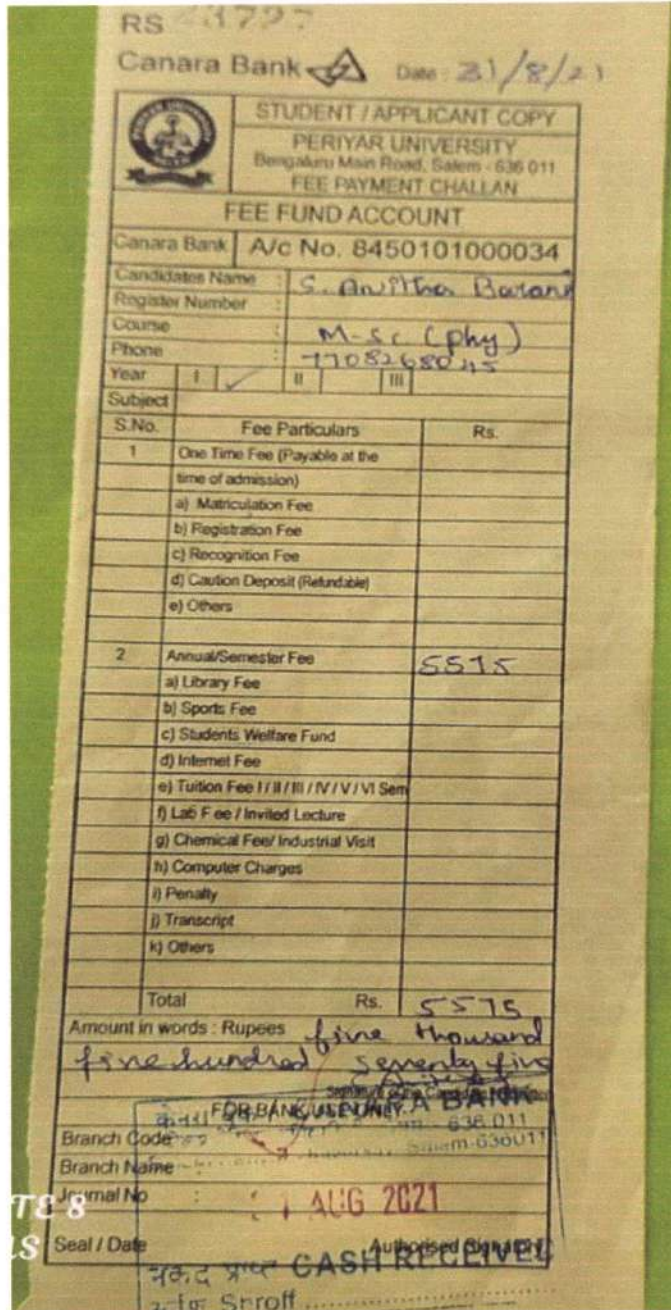 RS 43797
Canara Bank Date : 31/8/21
STUDENT / APPLICANT COPY
PERIYAR UNIVERSITY
Bengaluru Main Road, Salem - 636 011
FEE PAYMENT CHALLAN
FEE FUND ACCOUNT
Canara Bank A/c No. 8450101000034
Candidates Name : S. Anitha Barani
Register Number :
Course : M-Sc (phy)
Phone : 7708268045
Year I ✓ II III
Subject
S.No. Fee Particulars Rs.
1 One Time Fee (Payable at the
time of admission)
a) Matriculation Fee
b) Registration Fee
c) Recognition Fee
d) Caution Deposit (Refundable)
e) Others
2 Annual/Semester Fee 5575
a) Library Fee
b) Sports Fee
c) Students Welfare Fund
d) Internet Fee
e) Tuition Fee I / II / III / IV / V / VI Sem
f) Lab Fee / Invited Lecture
g) Chemical Fee/ Industrial Visit
h) Computer Charges
i) Penalty
j) Transcript
k) Others
Total Rs. 5575
Amount in words : Rupees five thousand
five hundred seventy five
FOR BANK USE ONLY
CANARA BANK
636 011
Branch Code Salem-636011
Branch Name
Journal No : AUG 2021
Seal / Date Authorised Signatory
नकद प्राप्त CASH RECEIVED
Shroff